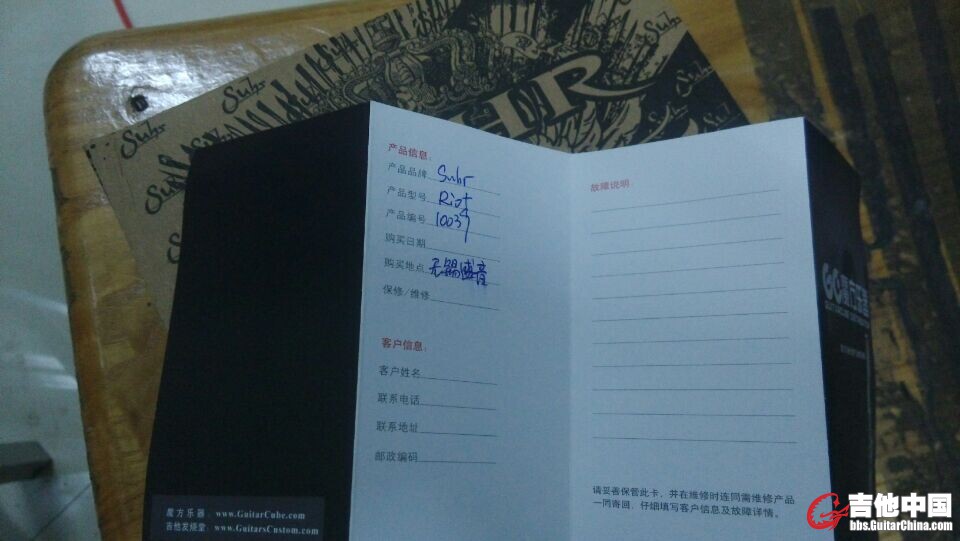 Suhr
Suhr
Suhr
Suhr
HR
产品信息:
产品品牌 Suhr
产品型号 Riot
产品编号 10039
购买日期
购买地点 无锡盛音
保修/维修
客户信息:
客户姓名
联系电话
联系地址
邮政编码
故障说明:
请妥善保管此卡，并在维修时连同需维修产品
一同寄回，仔细填写客户信息及故障详情。
魔方乐器: www.GuitarCube.com
吉他发烧堂: www.GuitarsCustom.com
魔方乐器
吉他中国
bbs.GuitarChina.com